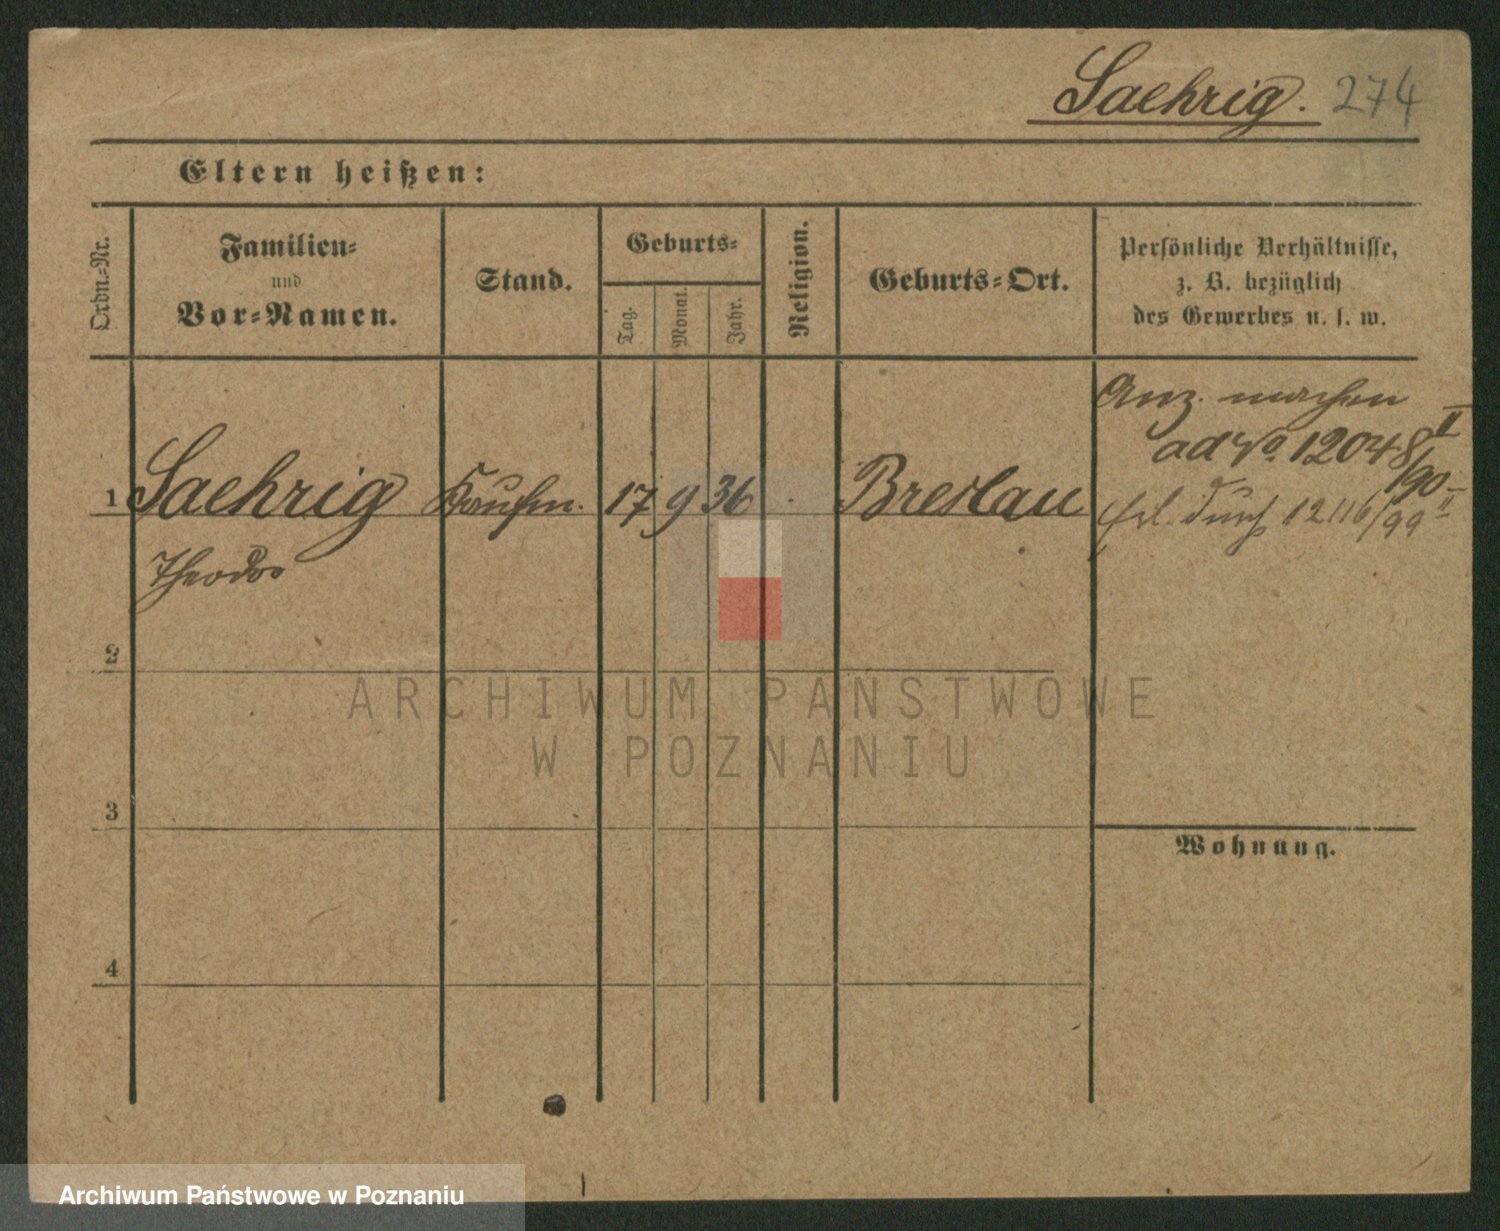 Saehrig. 274
Eltern heißen:
Ordn.-Nr.
Familien-
und
Vor-Namen.
Stand.
Geburts-
Tag.
Monat.
Jahr.
Religion.
Geburts-Ort.
Persönliche Verhältnisse,
z. B. bezüglich
des Gewerbes u. s. w.
1 Saehrig Kaufm. 17 9 36 Breslau
Theodor
Anz. machen
ad No. 12048/90 II
erl. durch 12116/99 II
2
3
4
Wohnung.
ARCHIWUM PAŃSTWOWE
W POZNANIU
Archiwum Państwowe w Poznaniu